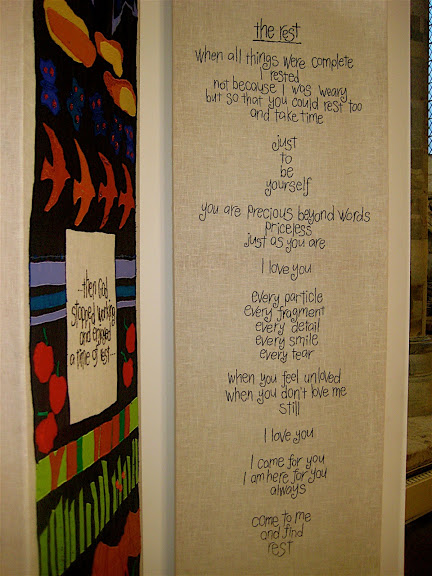 the rest
when all things were complete
I rested
not because I was weary
but so that you could rest too
and take time
just
to
be
yourself
you are precious beyond words
priceless
just as you are
I love you
every particle
every fragment
every detail
every smile
every tear
when you feel unloved
when you don't love me
still
I love you
I came for you
I am here for you
always
come to me
and find
rest
...then God
stopped working
and enjoyed
a time of rest...